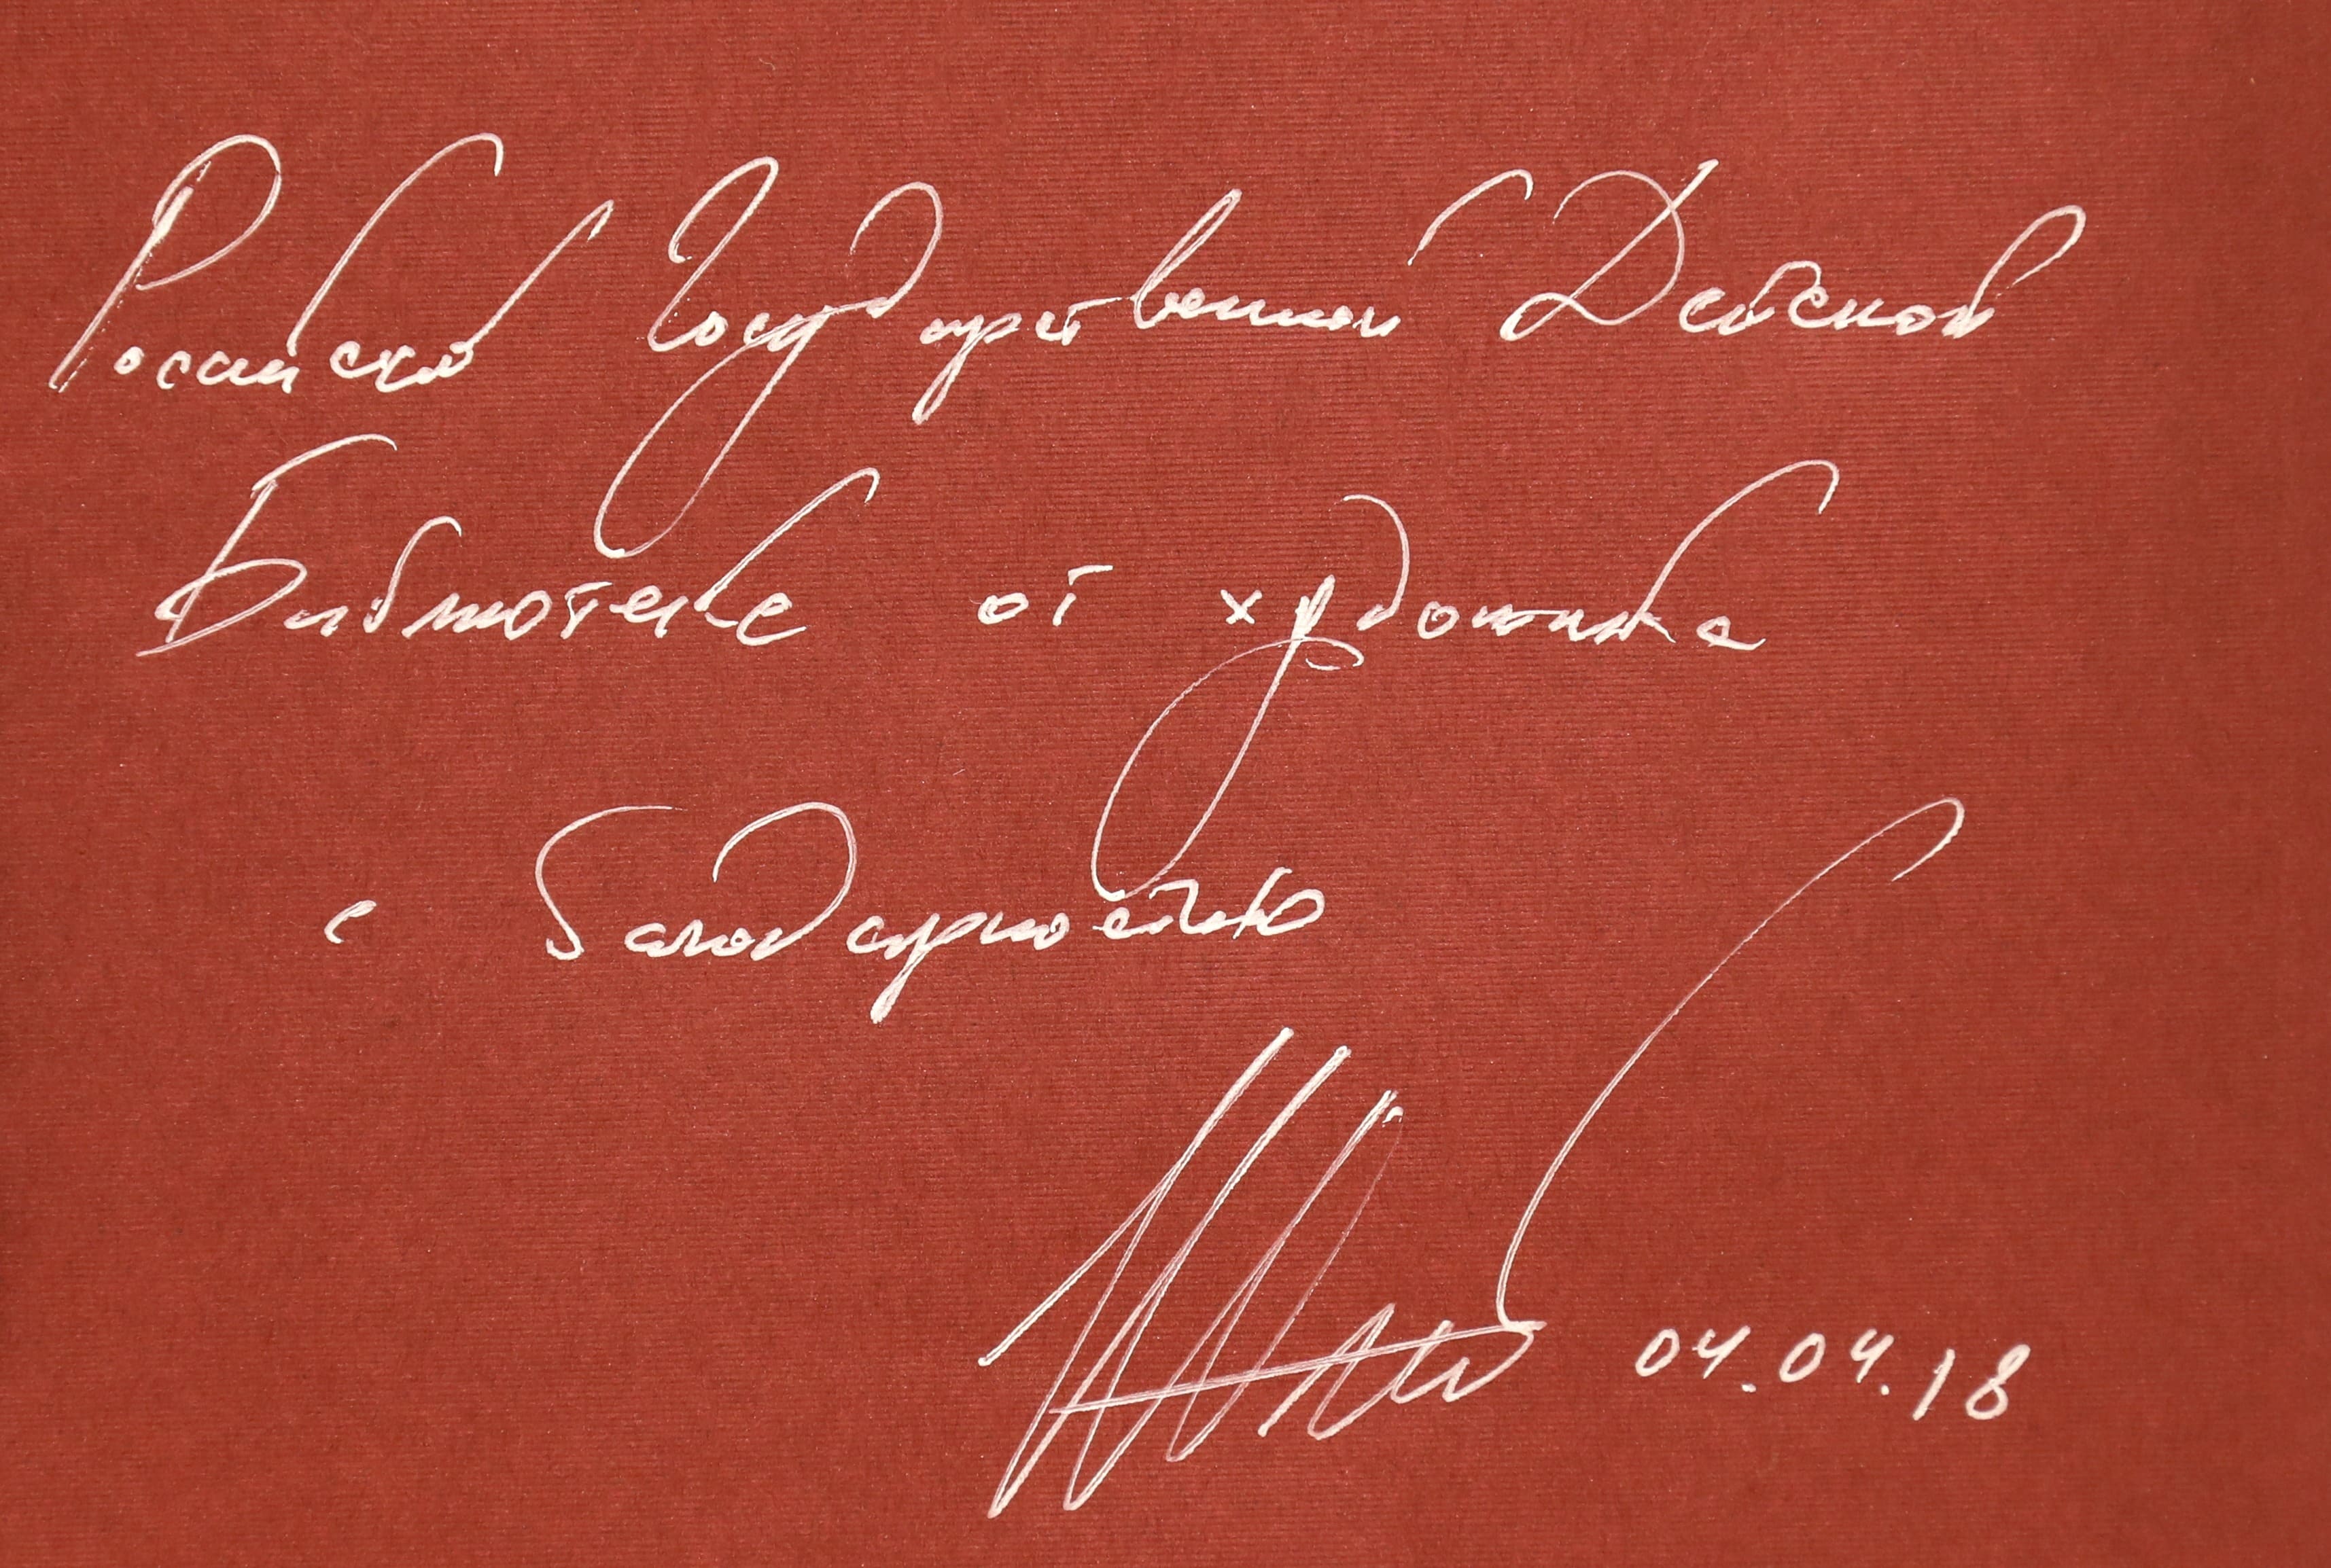 Российской Государственной Детской
Библиотеке от художника
с благодарностью
04.04.18